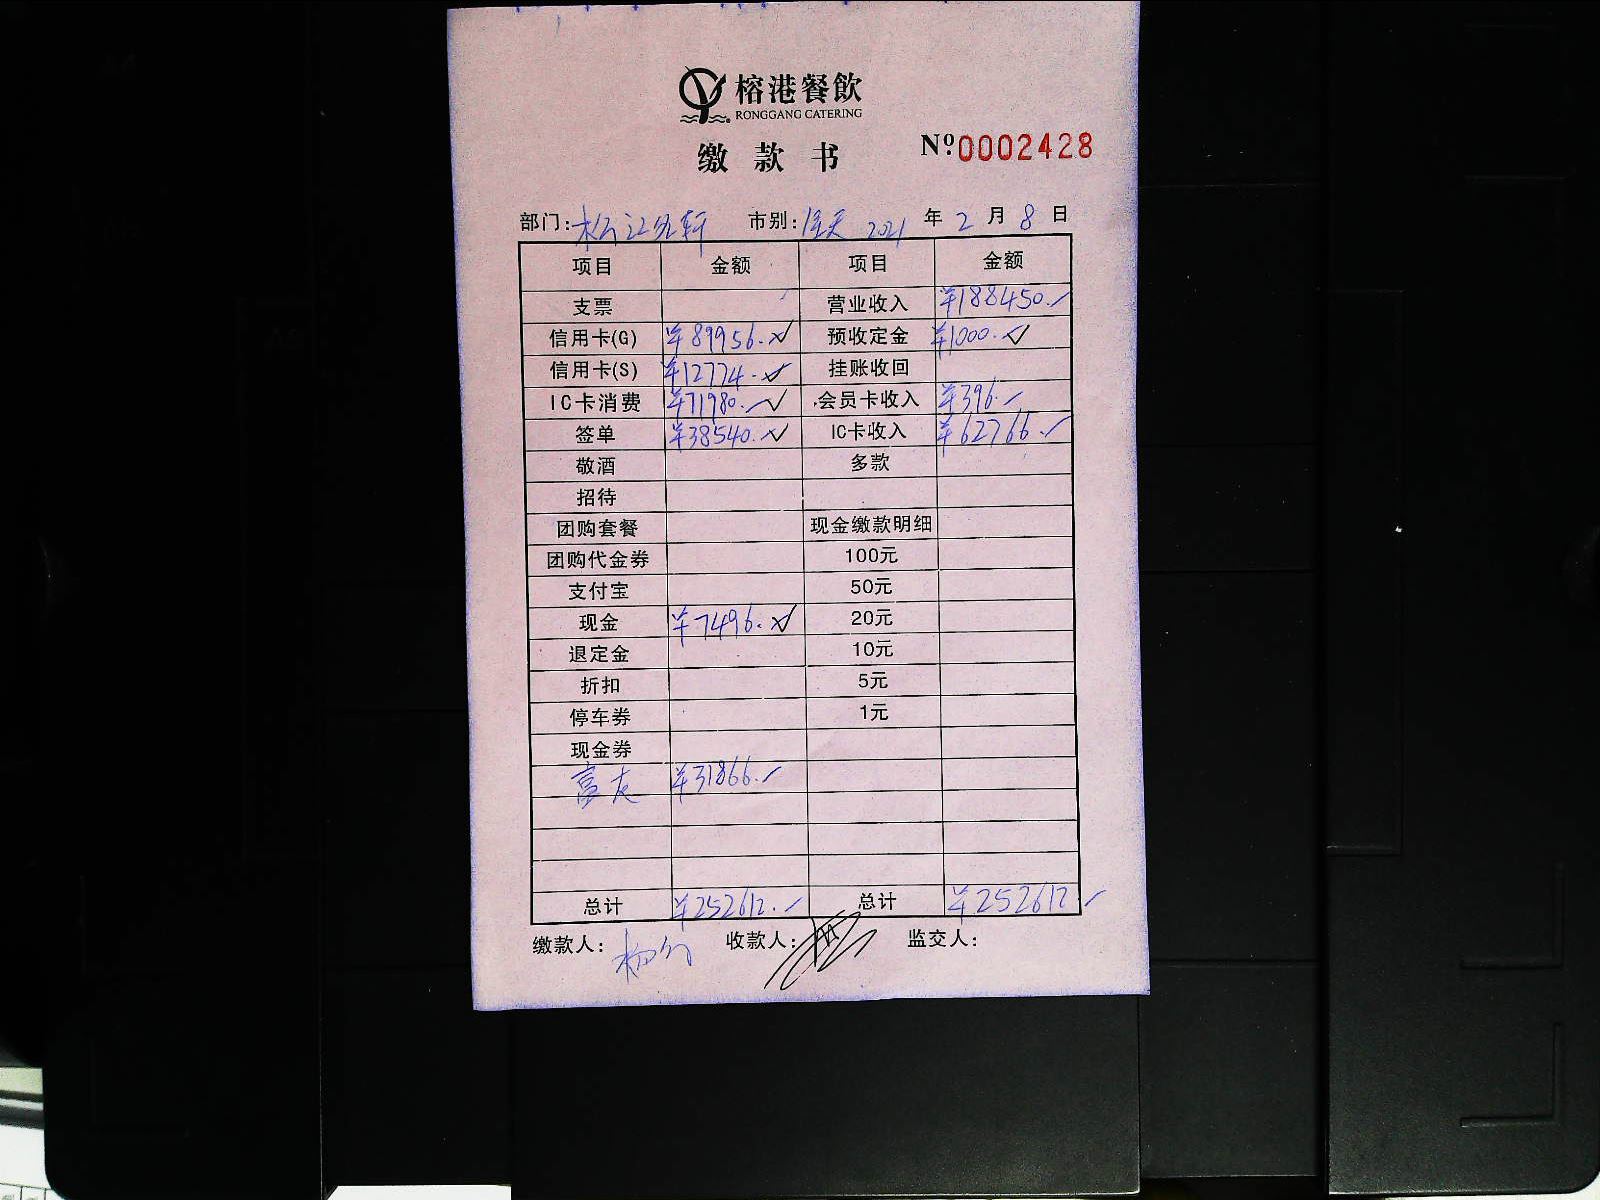 榕港餐飲
RONGGANG CATERING
缴款书
№0002428
部门:松江名轩 市别:全天 2021年2月8日
项目 金额 项目 金额
支票 营业收入 ¥188450.
信用卡(G) ¥89956. 预收定金 ¥1000.
信用卡(S) ¥12774. 挂账收回
IC卡消费 ¥71980. 会员卡收入 ¥396
签单 ¥38540. IC卡收入 ¥62766.
敬酒 多款
招待
团购套餐 现金缴款明细
团购代金券 100元
支付宝 50元
现金 ¥7496. 20元
退定金 10元
折扣 5元
停车券 1元
现金券
富友 ¥31866.
总计 ¥252612. 总计 ¥252612
缴款人: 收款人: 监交人: